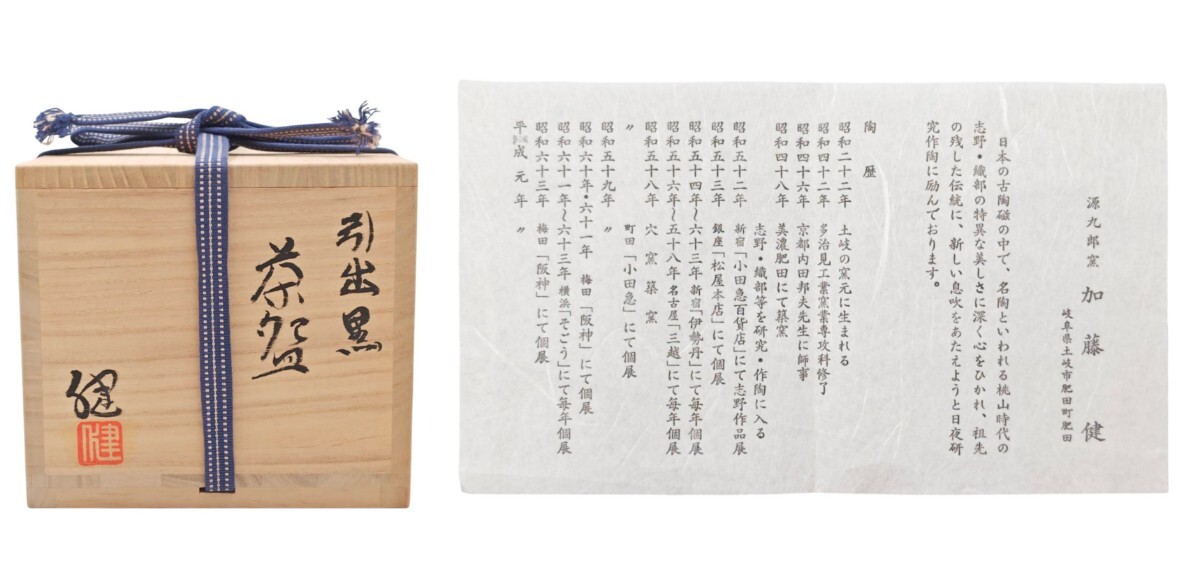 引出黒
茶盌
健
健
源九郎窯 加藤 健
岐阜県土岐市肥田町肥田
日本の古陶磁の中で、名陶といわれる桃山時代の
志野・織部の特異な美しさに深く心をひかれ、祖先
の残した伝統に、新しい息吹をあたえようと日夜研
究作陶に励んでおります。
陶歴
昭和二十二年 土岐の窯元に生まれる
昭和四十二年 多治見工業窯業専攻科修了
昭和四十六年 京都内田邦夫先生に師事
昭和四十八年 美濃肥田にて築窯
志野・織部等を研究・作陶に入る
昭和五十二年 新宿「小田急百貨店」にて志野作品展
昭和五十三年 銀座「松屋本店」にて個展
昭和五十四年〜六十三年 新宿「伊勢丹」にて毎年個展
昭和五十六年〜五十八年 名古屋「三越」にて毎年個展
昭和五十八年 穴窯築窯
〃 町田「小田急」にて個展
昭和五十九年 〃
昭和六十年・六十一年 梅田「阪神」にて個展
昭和六十一年〜六十三年 横浜「そごう」にて毎年個展
昭和六十三年 梅田「阪神」にて個展
平成元年 〃